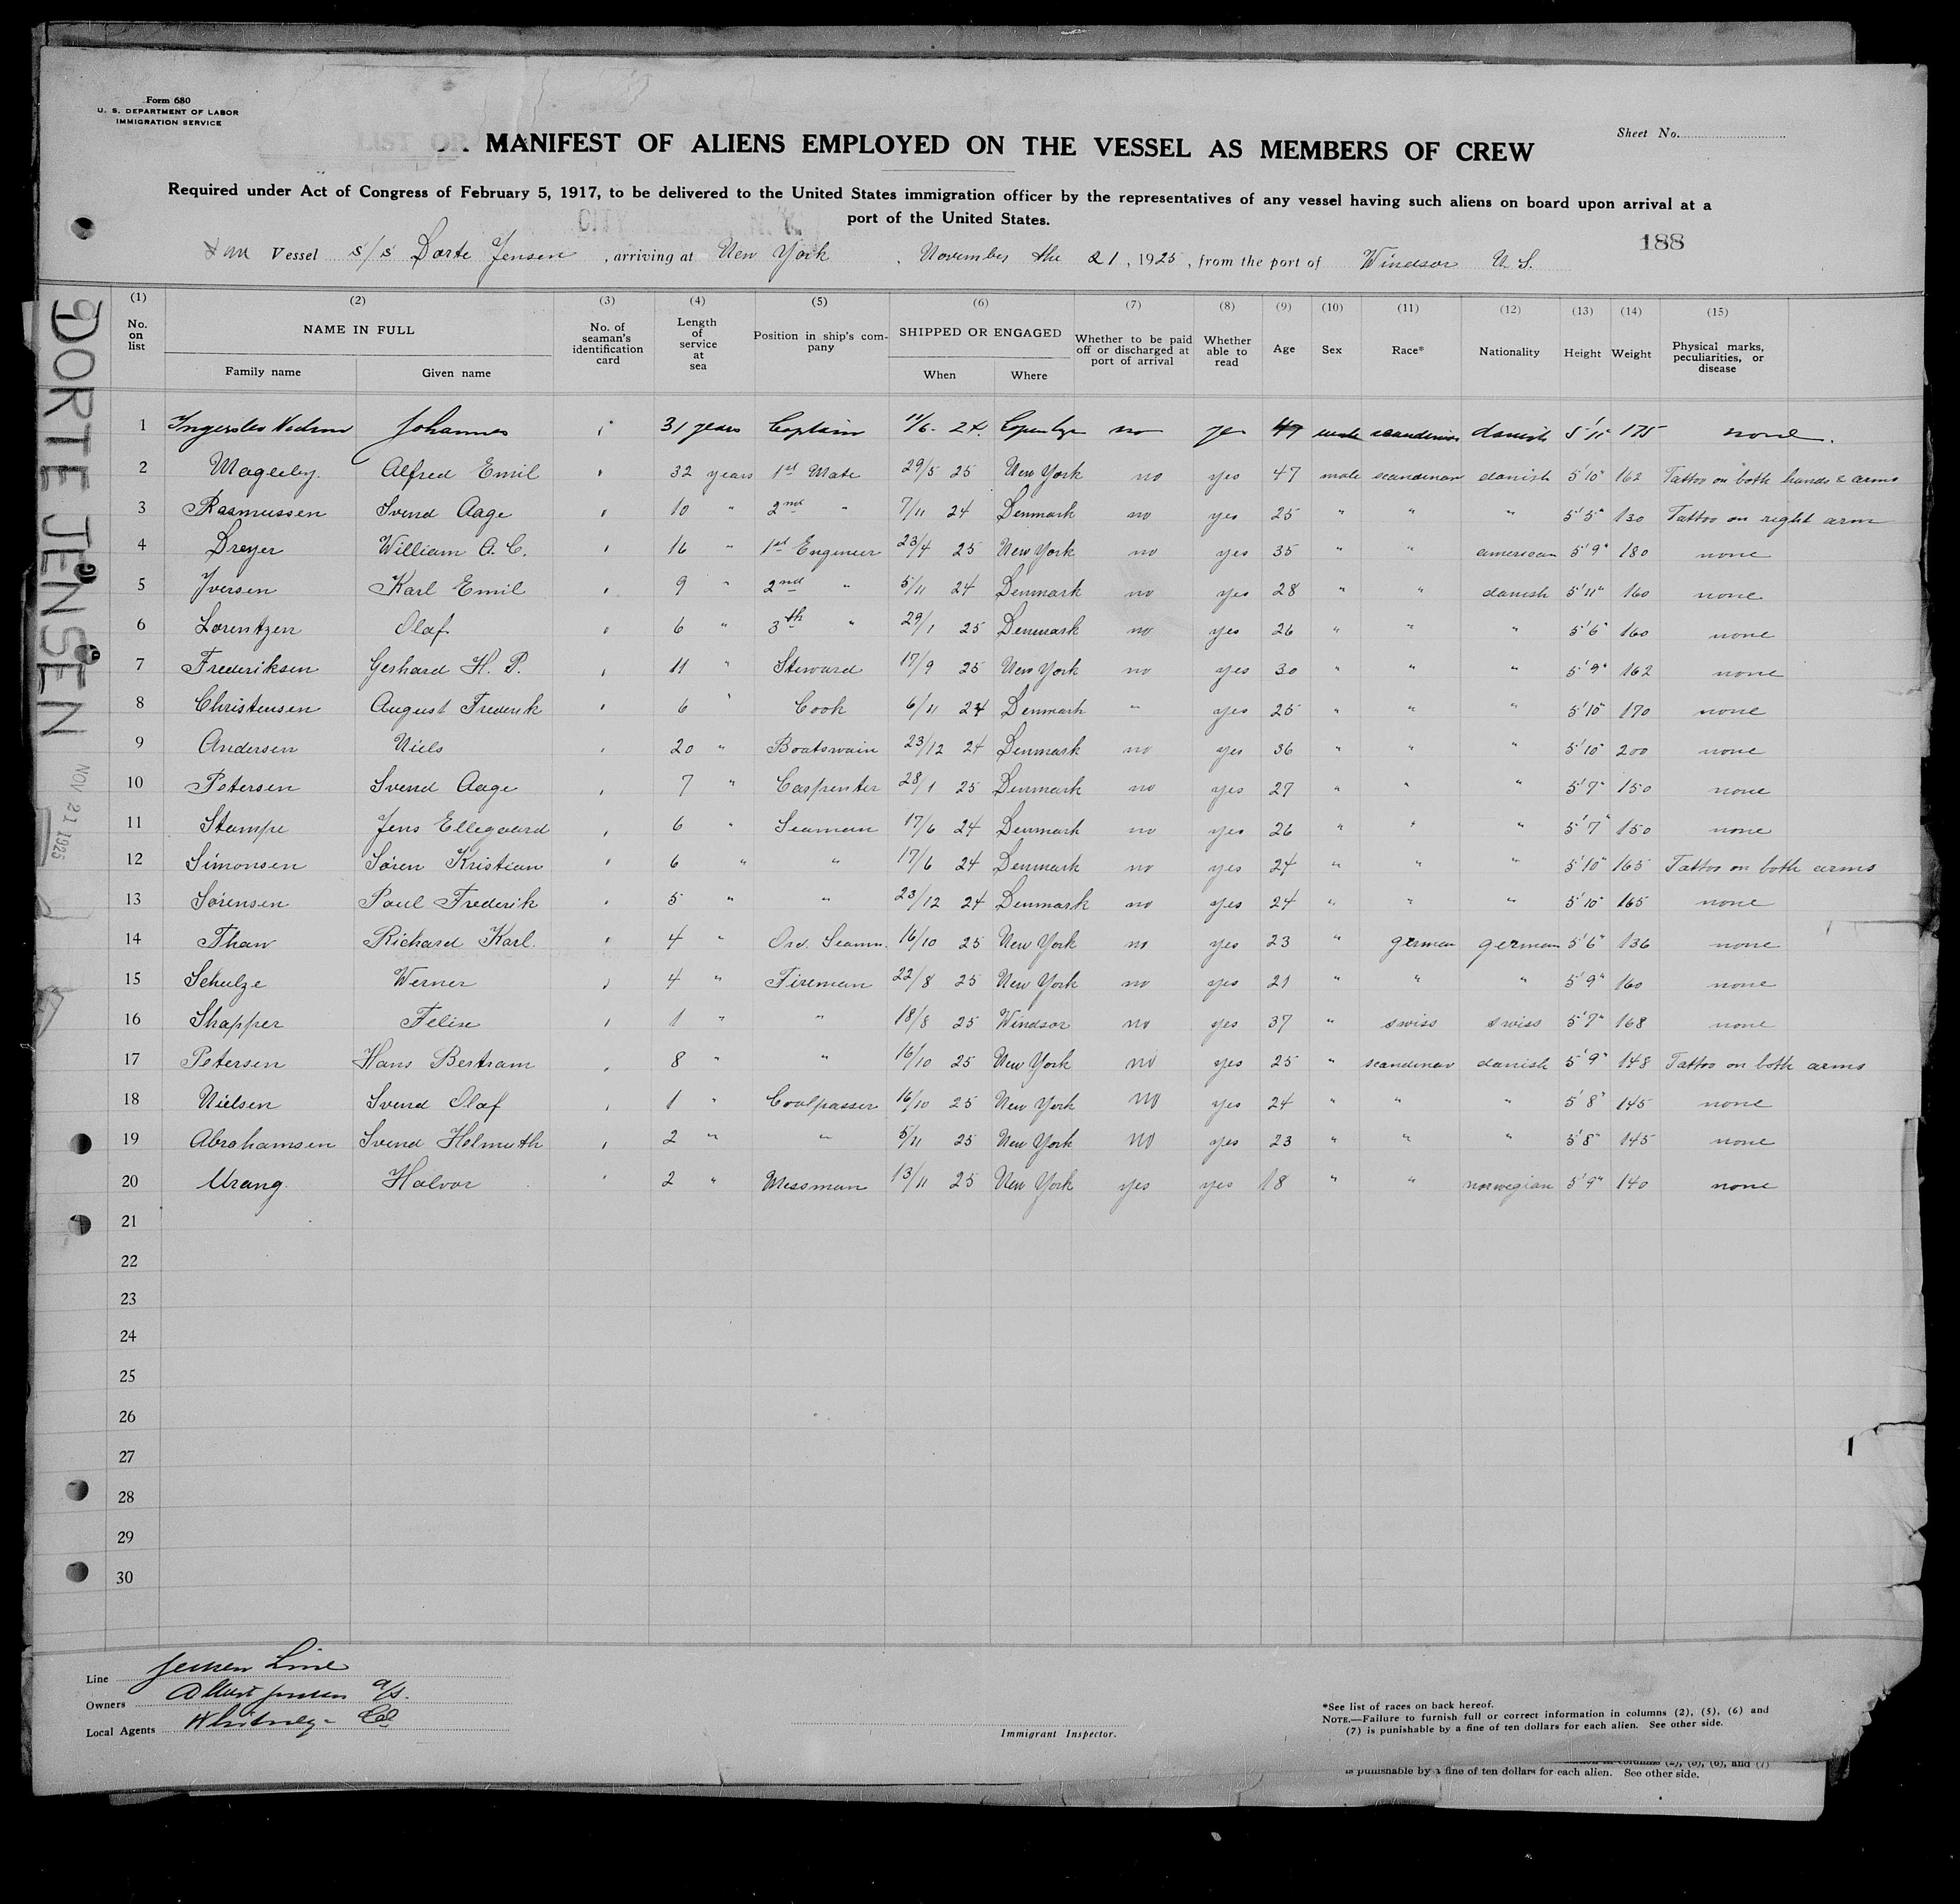 Form 680
U. S. DEPARTMENT OF LABOR
IMMIGRATION SERVICE
Sheet No.
LIST OR MANIFEST OF ALIENS EMPLOYED ON THE VESSEL AS MEMBERS OF CREW
Required under Act of Congress of February 5, 1917, to be delivered to the United States immigration officer by the representatives of any vessel having such aliens on board upon arrival at a
port of the United States.
188
Vessel s/s Dorte Jensen, arriving at New York, November the 21, 1925, from the port of Windsor N.S.
DORTE JENSEN
NOV 21 1925
(1) (2) (3) (4) (5) (6) (7) (8) (9) (10) (11) (12) (13) (14) (15)
No. on list NAME IN FULL Family name Given name No. of seaman's identification card Length of service at sea Position in ship's company SHIPPED OR ENGAGED When Where Whether to be paid off or discharged at port of arrival Whether able to read Age Sex Race* Nationality Height Weight Physical marks, peculiarities, or disease
1 Johannes 31 years Captain 11/6- 24. no yes 47 male danish 5'11" 175 none.
2 Mageeby. Alfred Emil 32 years 1st Mate 29/5 25 New York no yes 47 male scandinav danish 5'10" 162 Tattoo on both hands & arms
3 Rasmussen Svend Aage 10 " 2nd " 7/11 24 Denmark no yes 25 " " " 5'5" 130 Tattoo on right arm
4 Dreyer William A. C. 16 " 1st Engineer 23/4 25 New York no yes 35 " " american 5'9" 180 none
5 Iversen Karl Emil 9 " 2nd " 5/11 24 Denmark no yes 28 " " danish 5'11" 160 none
6 Lorentzen Olaf 6 " 3th " 29/1 25 Denmark no yes 26 " " " 5'6" 160 none
7 Frederiksen Gerhard H. P. 11 " Steward 17/9 25 New York no yes 30 " " " 5'9" 162 none
8 Christensen August Frederik 6 " Cook 6/11 24 Denmark " yes 25 " " " 5'10" 170 none
9 Andersen Niels 20 " Boatswain 23/12 24 Denmark no yes 36 " " " 5'10" 200 none
10 Petersen Svend Aage 7 " Carpenter 28/1 25 Denmark no yes 27 " " " 5'7" 150 none
11 Stampe Jens Ellegaard 6 " Seaman 17/6 24 Denmark no yes 26 " " " 5'7" 150 none
12 Simonsen Sören Kristian 6 " " 17/6 24 Denmark no yes 24 " " " 5'10" 165 Tattoo on both arms
13 Sörensen Paul Frederik 5 " " 23/12 24 Denmark no yes 24 " " " 5'10" 165 none
14 Thaw Richard Karl. 4 " Ord. Seamn. 16/10 25 New York no yes 23 " german german 5'6" 136 none
15 Schulze Werner 4 " Fireman 22/8 25 New York no yes 21 " " " 5'9" 160 none
16 Shapper Felix 1 " " 18/8 25 Windsor no yes 37 " swiss swiss 5'7" 168 none
17 Petersen Hans Bertram 8 " " 16/10 25 New York no yes 25 " scandinav danish 5'9" 148 Tattoo on both arms
18 Nielsen Svend Olaf 1 " Coalpasser 16/10 25 New York no yes 24 " " " 5'8" 145 none
19 Abrahamsen Svend Helmuth 2 " " 5/11 25 New York no yes 23 " " " 5'8" 145 none
20 Urang. Halvor 2 " Messman 13/11 25 New York yes yes 18 " " norwegian 5'9" 140 none
21
22
23
24
25
26
27
28
29
30
Line Jensen Line
Owners Albert Jensen a/s.
Local Agents Whitney - Co
Immigrant Inspector.
*See list of races on back hereof.
NOTE.—Failure to furnish full or correct information in columns (2), (5), (6) and
(7) is punishable by a fine of ten dollars for each alien. See other side.
is punishable by a fine of ten dollars for each alien. See other side.